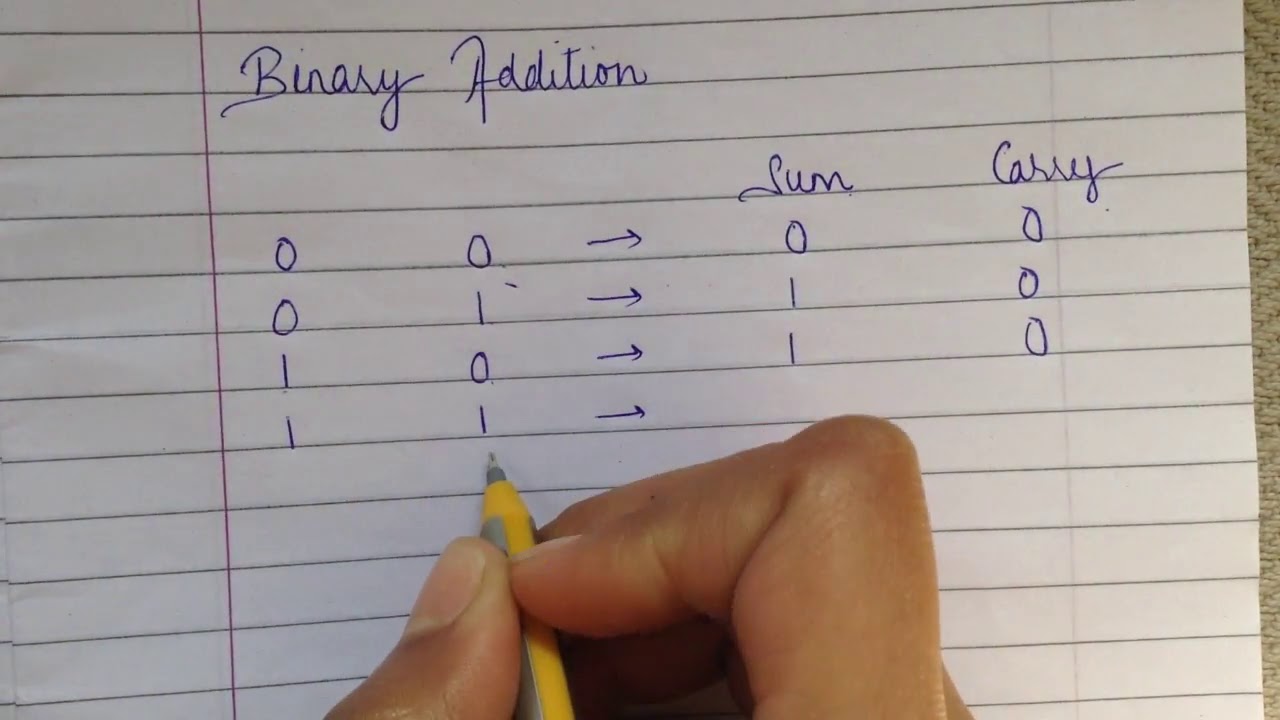 Binary Addition
Sum Carry
0 0 → 0 0
0 1 → 1 0
1 0 → 1 0
1 1 →